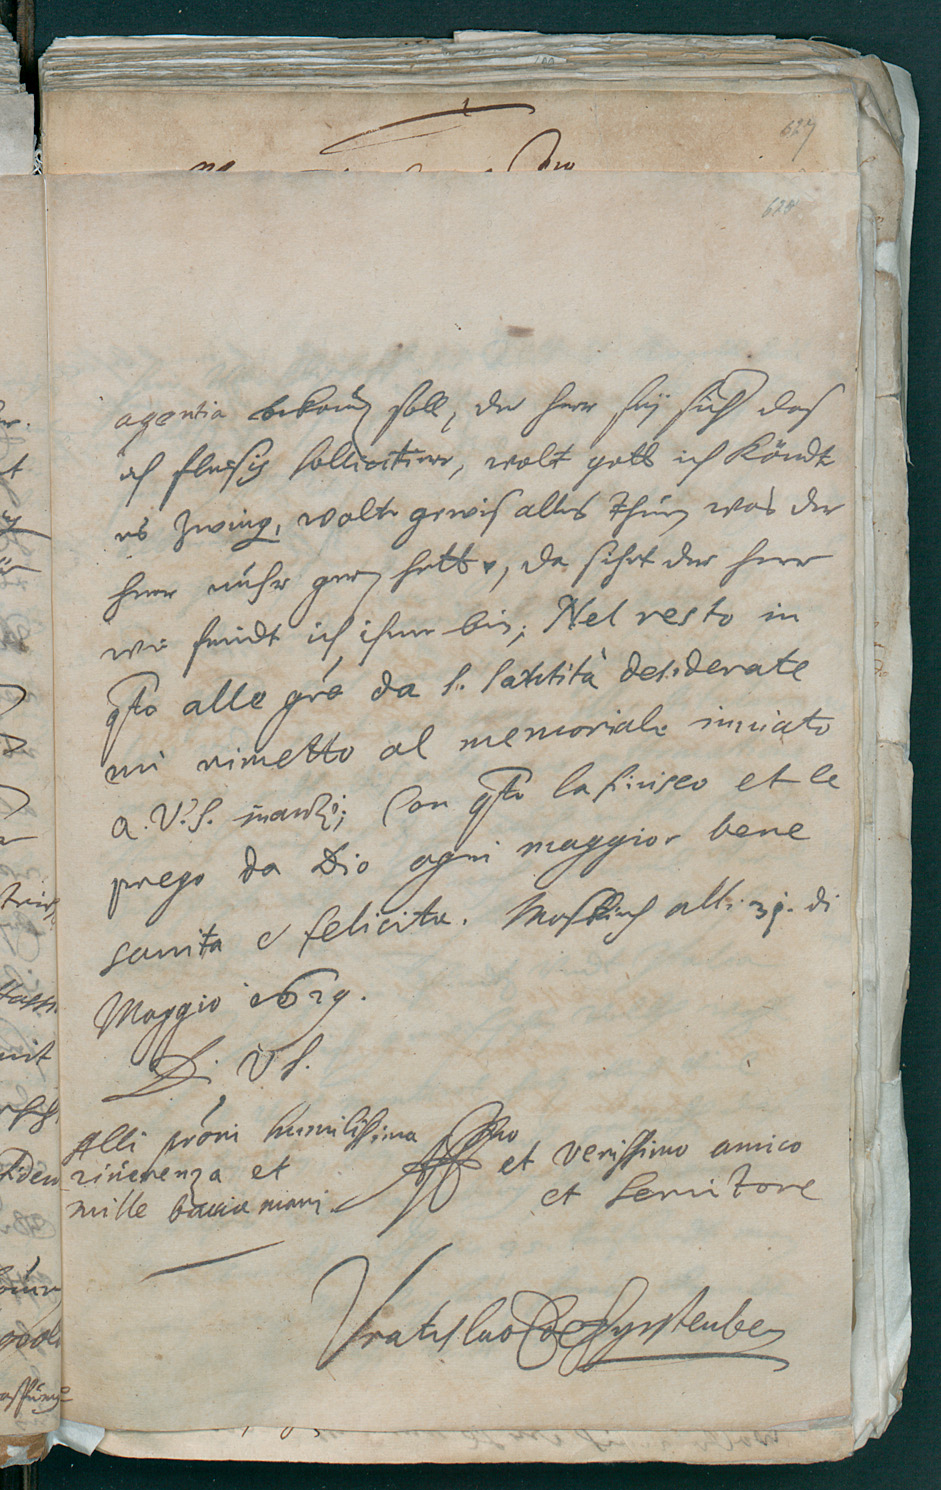 627
628
agentia bekom̃ soll, der herr sey sich das
ich fleissig sollicitiere, wolt gott ich köndt
es zwing, wolte gewis alles thun was der
herr nuhr gern hette, da siht der herr
wie feindt ich ihme bin; Nel resto in
qsto alle grẽ da S. Santità desiderate
mi rimetto al memoriale inuiato
a. V. S. inanzi; Con qsto la finisco et le
prego da Dio ogni maggior bene
sanita e felicita. alli 31. di
Maggio 1629.
Di V S.
Alli humilissima
riuerenza et
mille baccia mani
Affmo et verissimo amico
et Seruitore
Vratislao Co Fyrstenberg